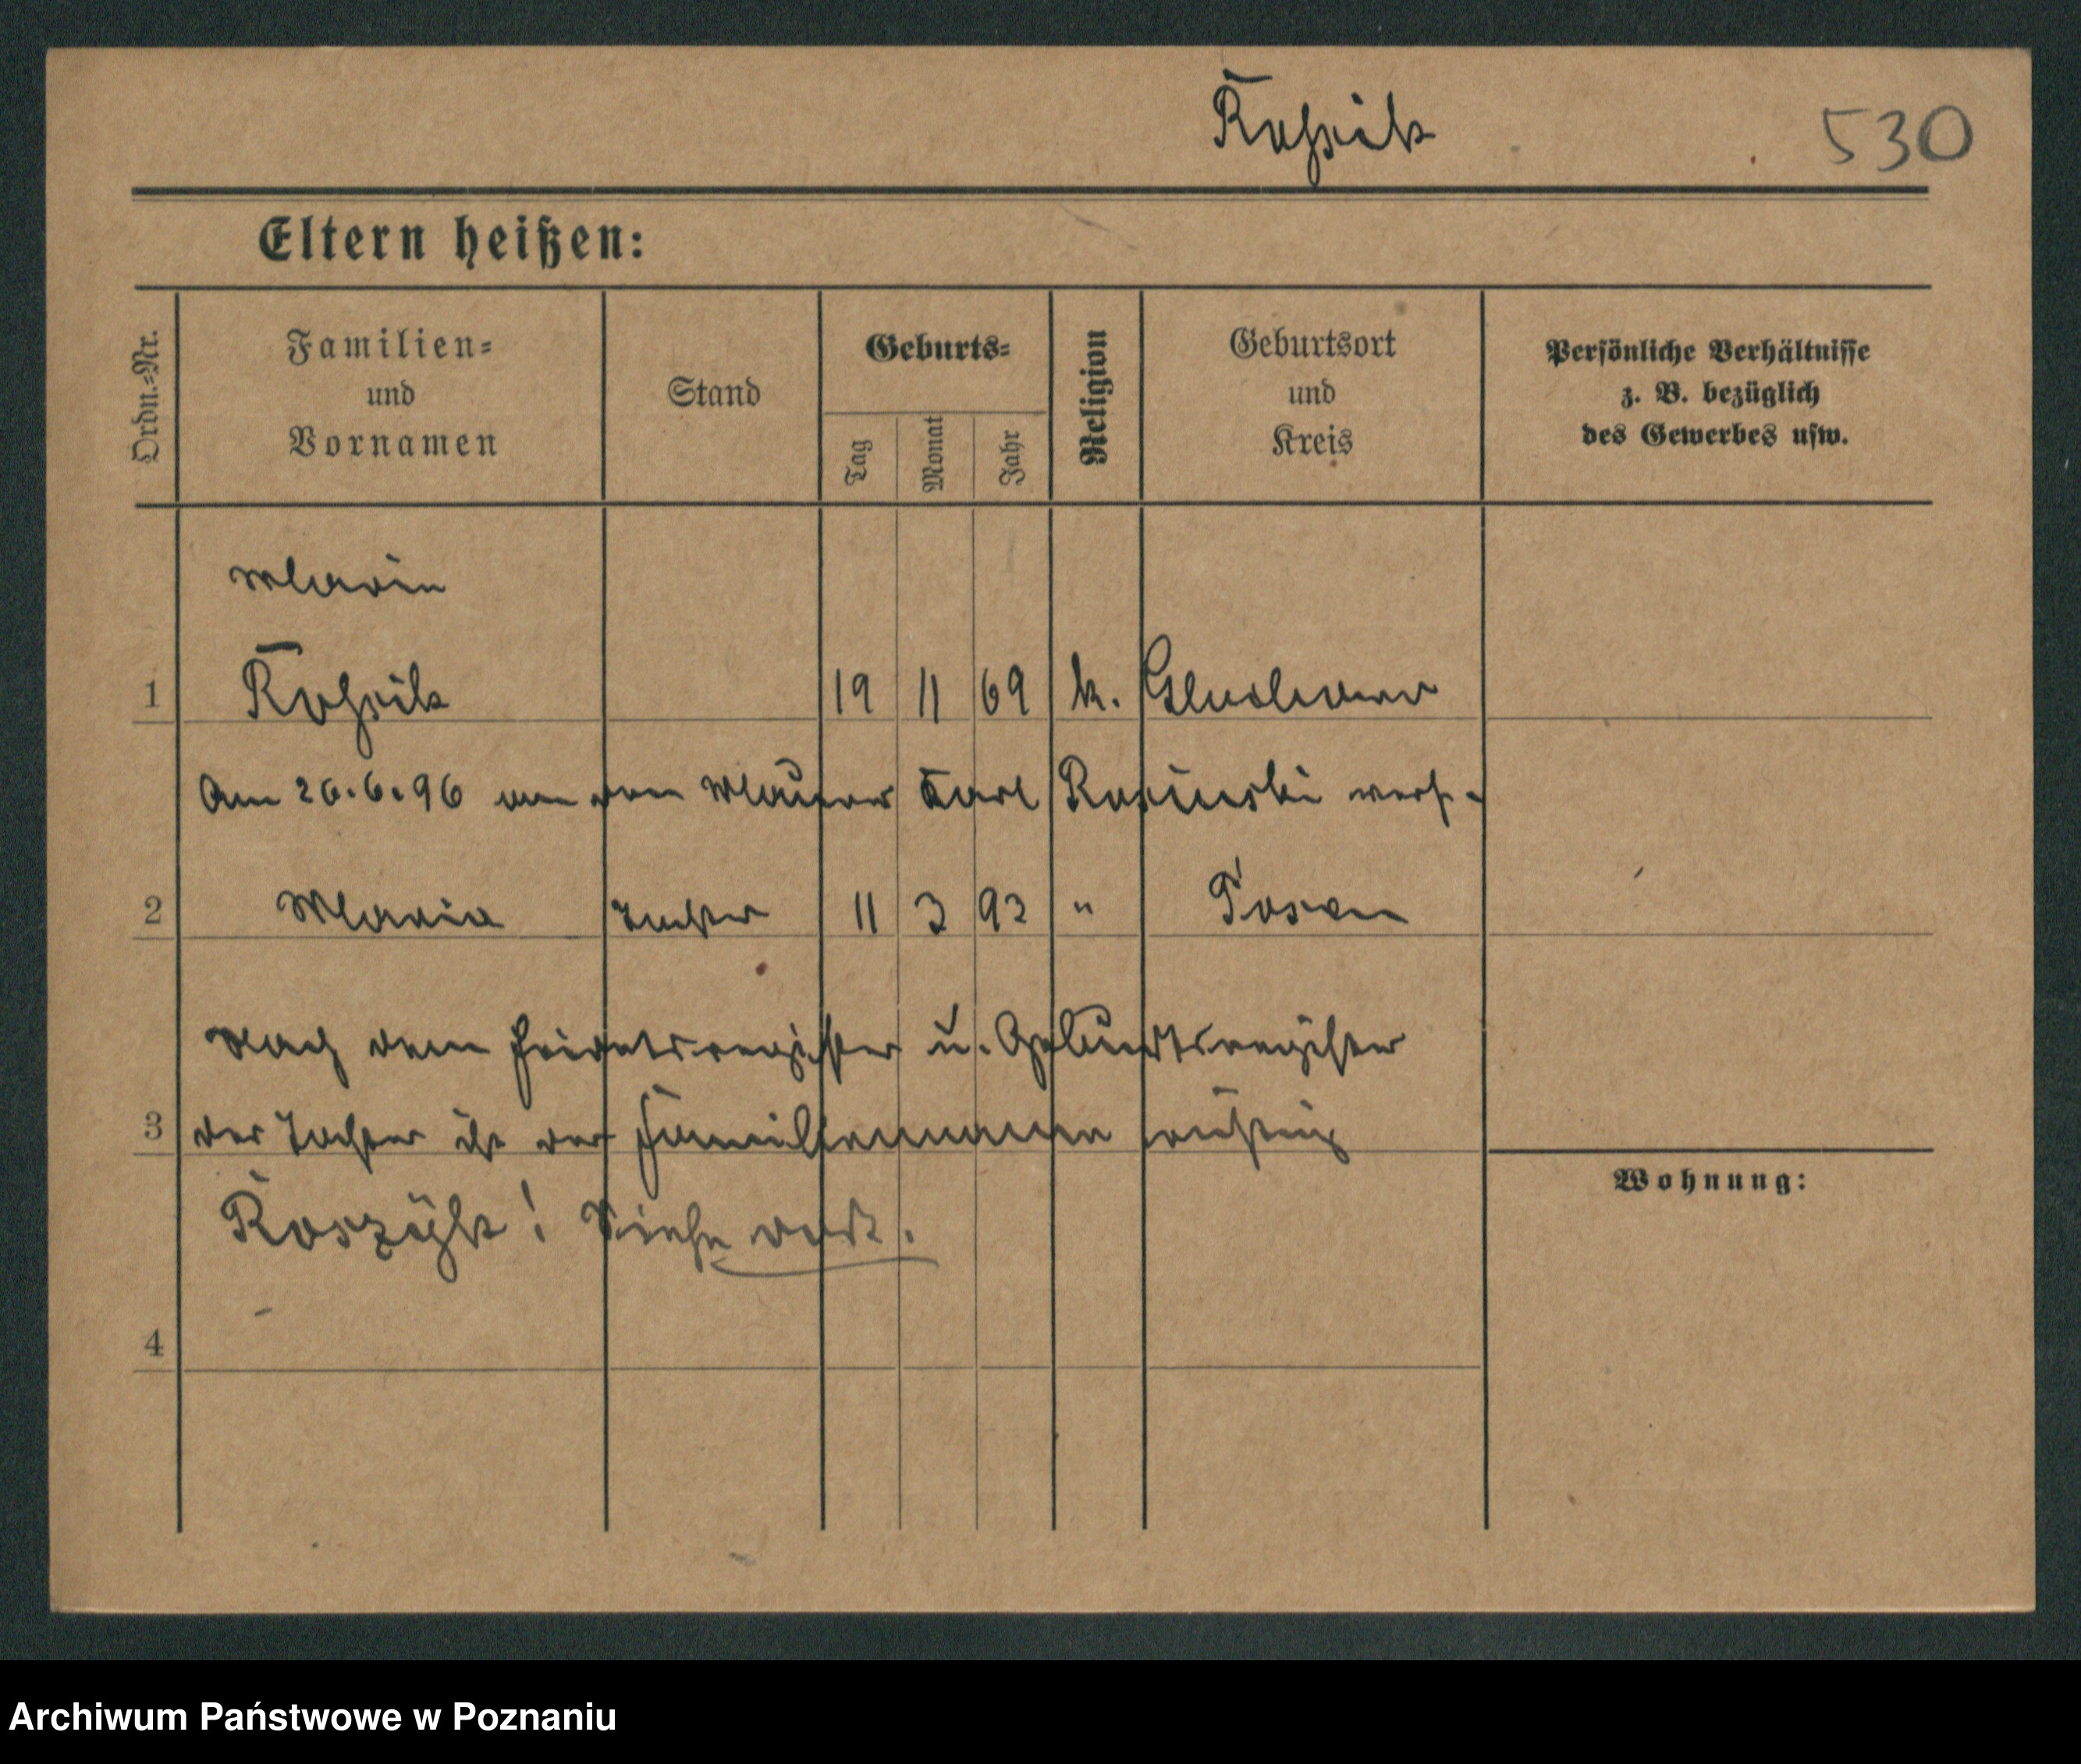 Kossik
530
Eltern heißen:
Ordn.-Nr.
Familien-
und
Vornamen
Stand
Geburts-
Tag
Monat
Jahr
Religion
Geburtsort
und
Kreis
Persönliche Verhältnisse
z. B. bezüglich
des Gewerbes usw.
Marie
1 19 11 69 k.
Am 26.6.96 an den Maurer Karl Rosinski verh.
2 Maria Tochter 11 3 93 " Posen
Nach dem Heiratsregister u. Geburtsregister
3 der Tochter ist der Familienname richtig
Wohnung:
Koszyk! Siehe dort.
4
Archiwum Państwowe w Poznaniu